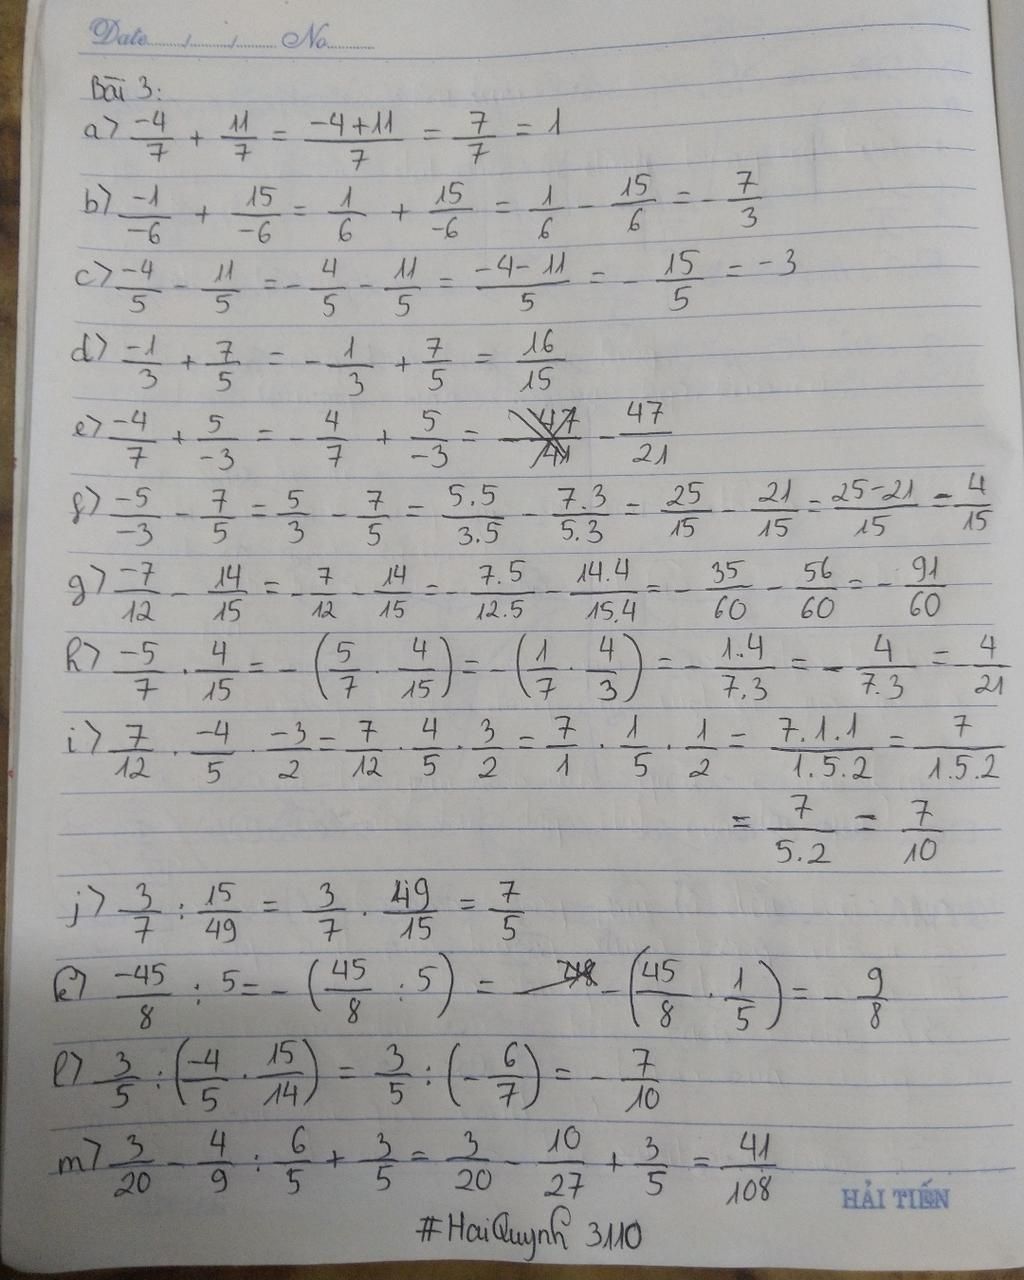 Date...../......../........ No...........
Bài 3:
a> -4/7 + 11/7 = (-4+11)/7 = 7/7 = 1
b> -1/-6 + 15/-6 = 1/6 + 15/-6 = 1/6 - 15/6 = - 7/3
c> -4/5 - 11/5 = - 4/5 - 11/5 = (-4-11)/5 = - 15/5 = -3
d> -1/3 + 7/5 = - 1/3 + 7/5 = 16/15
e> -4/7 + 5/-3 = - 4/7 + 5/-3 = - 47/21
f> -5/-3 - 7/5 = 5/3 - 7/5 = 5.5/3.5 - 7.3/5.3 = 25/15 - 21/15 = (25-21)/15 = 4/15
g> -7/12 - 14/15 = - 7/12 - 14/15 = - 7.5/12.5 - 14.4/15.4 = - 35/60 - 56/60 = - 91/60
h> -5/7 . 4/15 = - (5/7 . 4/15) = - (1/7 . 4/3) = - 1.4/7.3 = - 4/7.3 = - 4/21
i> 7/12 . -4/5 . -3/2 = 7/12 . 4/5 . 3/2 = 7/1 . 1/5 . 1/2 = 7.1.1/1.5.2 = 7/1.5.2
= 7/5.2 = 7/10
j> 3/7 : 15/49 = 3/7 . 49/15 = 7/5
k> -45/8 : 5 = - (45/8 : 5) = - (45/8 . 1/5) = - 9/8
l> 3/5 : (-4/5 . 15/14) = 3/5 : (- 6/7) = - 7/10
m> 3/20 - 4/9 : 6/5 + 3/5 = 3/20 - 10/27 + 3/5 = 41/108
HẢI TIẾN
#HaiQuynh 3110